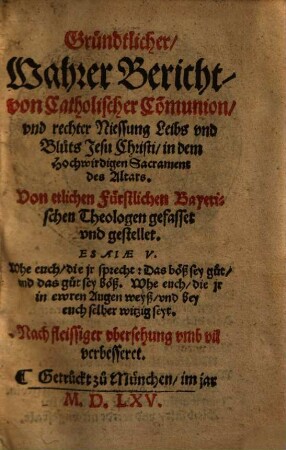 Gründtlicher/
Wahrer Bericht/
von Catholischer Cõmunion/
vnd rechter Niessung Leibs vnd
Blůts Jesu Christi/ in dem
Hochwirdigen Sacrament
des Altars.
Von etlichen Fürstlichen Bayeri-
schen Theologen gefasset
vnd gestellet.
ESAIÆ V.
Whe euch/ die jr sprecht: Das böß sey gůt/
vnd das gůt sey böß. Whe euch/ die jr
in ewren Augen weyß/ vnd bey
euch selber witzig seyt.
Nach fleissiger vbersehung vmb vil
verbesseret.
Getruckt zů München/ im jar
M. D. LXV.